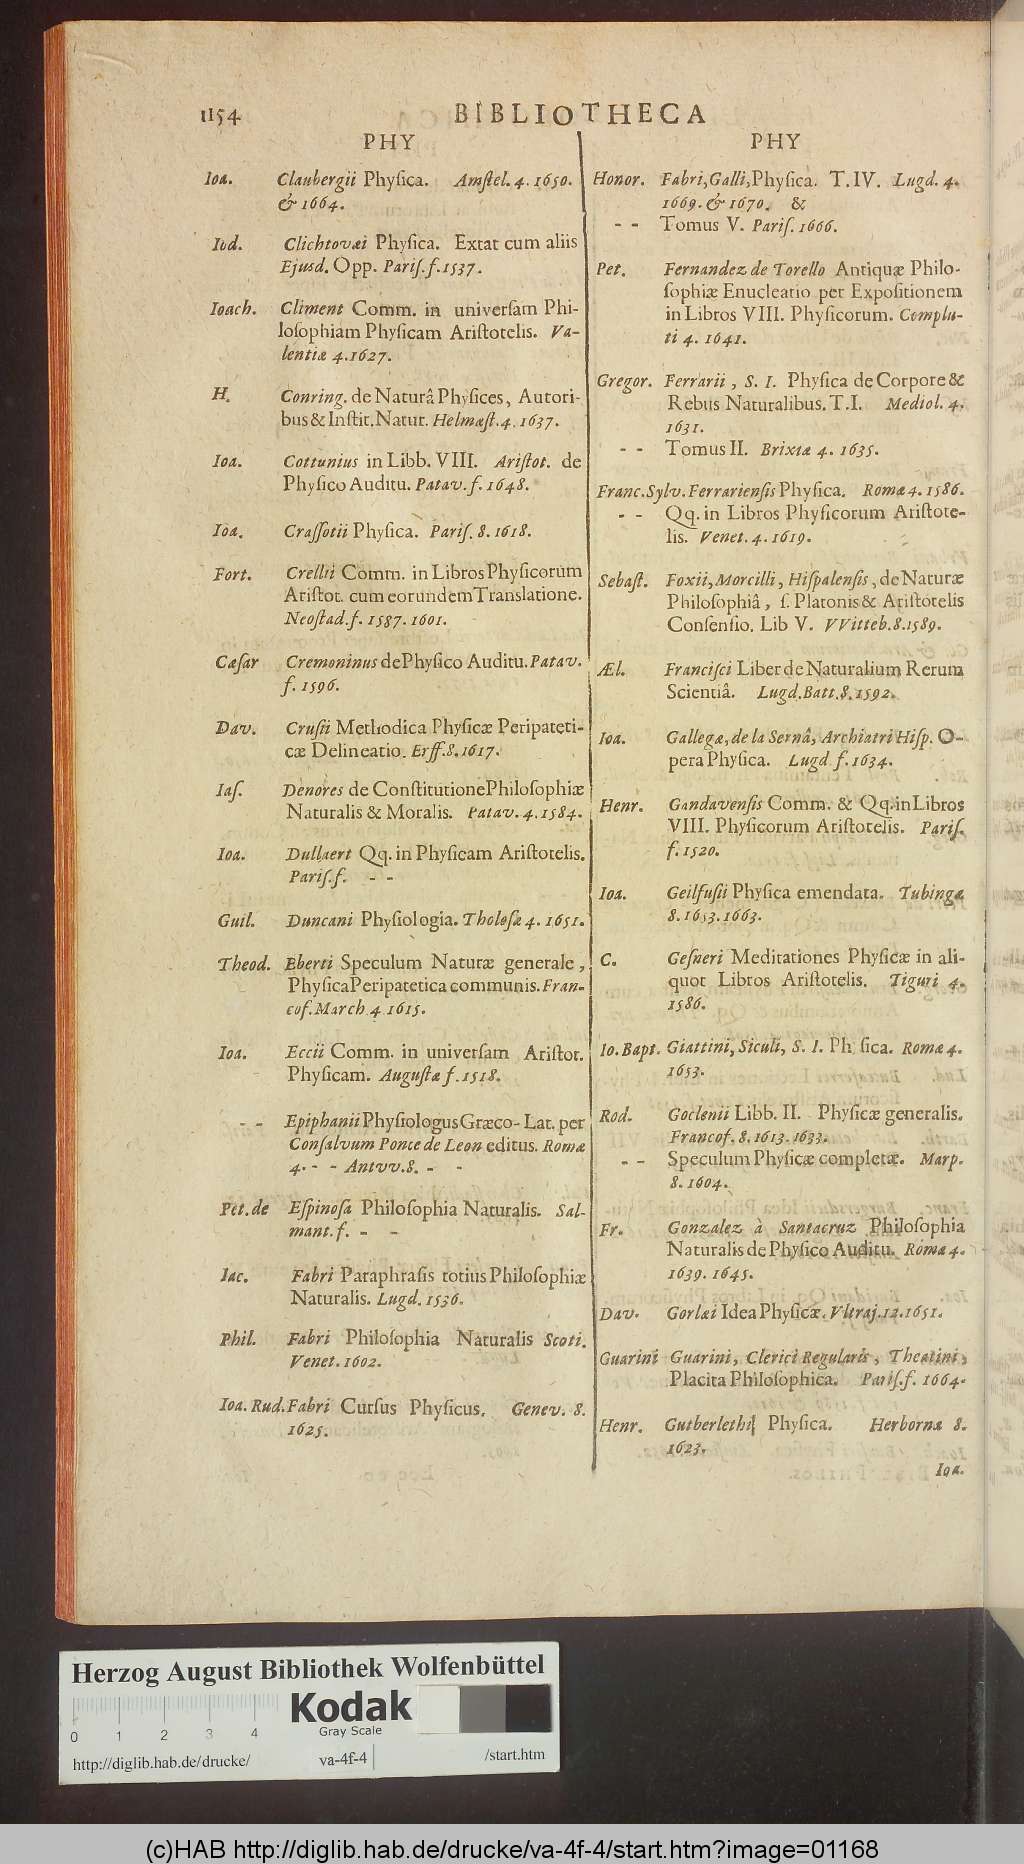 1154
BIBLIOTHECA
PHY
Ioa. Claubergii Phyſica. Amſtel. 4. 1650.
& 1664.
Iod. Clichtovæi Phyſica. Extat cum aliis
Ejusd. Opp. Pariſ. f. 1537.
Ioach. Climent Comm. in univerſam Phi-
loſophiam Phyſicam Ariſtotelis. Va-
lentiæ 4. 1627.
H. Conring. de Naturâ Phyſices, Autori-
bus & Inſtit. Natur. Helmæſt. 4. 1637.
Ioa. Cottunius in Libb. VIII. Ariſtot. de
Phyſico Auditu. Patav. f. 1648.
Ioa. Craſſotii Phyſica. Pariſ. 8. 1618.
Fort. Crellii Comm. in Libros Phyſicorum
Ariſtot. cum eorundem Translatione.
Neoſtad. f. 1587. 1601.
Cæſar Cremoninus de Phyſico Auditu. Patav.
f. 1596.
Dav. Cruſii Methodica Phyſicæ Peripateti-
cæ Delineatio. Erff. 8. 1617.
Iaſ. Denores de Conſtitutione Philoſophiæ
Naturalis & Moralis. Patav. 4. 1584.
Ioa. Dullaert Qq. in Phyſicam Ariſtotelis.
Pariſ. f. - -
Guil. Duncani Phyſiologia. Tholoſæ 4. 1651.
Theod. Eberti Speculum Naturæ generale,
Phyſica Peripatetica communis. Fran-
cof. March. 4 1615.
Ioa. Eccii Comm. in univerſam Ariſtot.
Phyſicam. Auguſtæ f. 1518.
- - Epiphanii Phyſiologus Græco-Lat. per
Conſalvum Ponce de Leon editus. Romæ
4. - - Antvv. 8. - -
Pet. de Eſpinoſa Philoſophia Naturalis. Sal-
mant. f. - -
Iac. Fabri Paraphraſis totius Philoſophiæ
Naturalis. Lugd. 1536.
Phil. Fabri Philoſophia Naturalis Scoti.
Venet. 1602.
Ioa. Rud. Fabri Curſus Phyſicus. Genev. 8.
1625.
PHY
Honor. Fabri, Galli, Phyſica. T. IV. Lugd. 4.
1669. & 1670. &
- - Tomus V. Pariſ. 1666.
Pet. Fernandez de Torello Antiquæ Philo-
ſophiæ Enucleatio per Expoſitionem
in Libros VIII. Phyſicorum. Complu-
ti 4. 1641.
Gregor. Ferrarii, S. I. Phyſica de Corpore &
Rebus Naturalibus. T. I. Mediol. 4.
1631.
- - Tomus II. Brixiæ 4. 1635.
Franc. Sylv. Ferrarienſis Phyſica. Romæ 4. 1586.
- - Qq. in Libros Phyſicorum Ariſtote-
lis. Venet. 4. 1619.
Sebaſt. Foxii, Morcilli, Hiſpalenſis, de Naturæ
Philoſophiâ, ſ. Platonis & Ariſtotelis
Conſenſio. Lib V. VVitteb. 8. 1589.
Æl. Franciſci Liber de Naturalium Rerum
Scientiâ. Lugd. Batt. 8. 1592.
Ioa. Gallegæ, de la Sernâ, Archiatri Hiſp. O-
pera Phyſica. Lugd f. 1634.
Henr. Gandavenſis Comm. & Qq. in Libros
VIII. Phyſicorum Ariſtotelis. Pariſ.
f. 1520.
Ioa. Geilfuſii Phyſica emendata. Tubingæ
8. 1653. 1663.
C. Geſneri Meditationes Phyſicæ in ali-
quot Libros Ariſtotelis. Tiguri 4.
1586.
Io. Bapt. Giattini, Siculi, S. I. Ph ſica. Romæ 4.
1653.
Rod. Goclenii Libb. II. Phyſicæ generalis.
Francof. 8. 1613. 1633.
- - Speculum Phyſicæ completæ. Marp.
8. 1604.
Fr. Gonzalez à Santacruz Philoſophia
Naturalis de Phyſico Auditu. Romæ 4.
1639. 1645.
Dav. Gorlæi Idea Phyſicæ. Vltraj. 12. 1651.
Guarini Guarini, Clerici Regularis, Theatini,
Placita Philoſophica. Pariſ. f. 1664.
Henr. Gutberlethi Phyſica. Herbornæ 8.
1623.
Ioa.
Herzog August Bibliothek Wolfenbüttel
Kodak
Gray Scale
0 1 2 3 4
http://diglib.hab.de/drucke/ va-4f-4 /start.htm
(c)HAB http://diglib.hab.de/drucke/va-4f-4/start.htm?image=01168